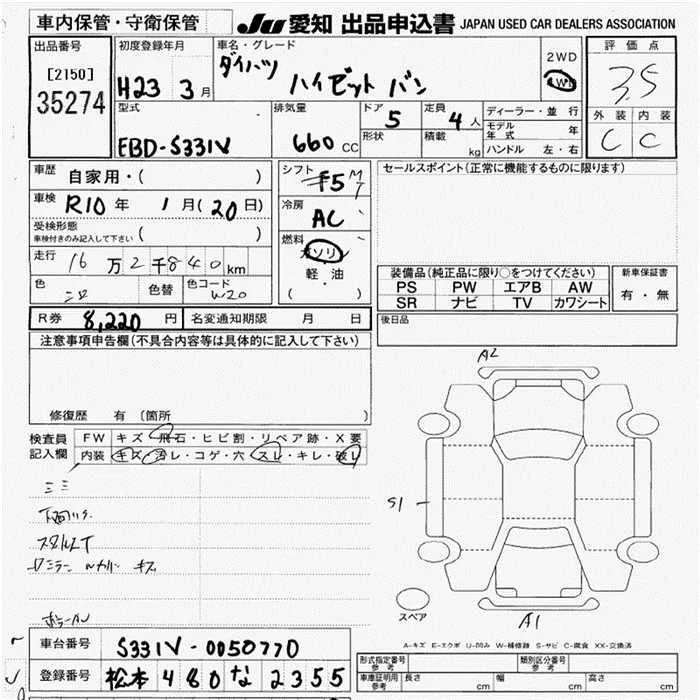 車内保管・守衛保管 JU 愛知 出品申込書 JAPAN USED CAR DEALERS ASSOCIATION
出品番号 初度登録年月 車名・グレード 評価点
[2150]
35274
H23 3月
ダイハツ
ハイゼット バン
2WD
4WD
3.5
外装 内装
C C
型式 排気量 ドア 定員 ディーラー・並行
EBD-S331V 660 CC 5 4人
形状 積載 kg
モデル年式 年
ハンドル 左・右
車歴 自家用・( )
シフト F5
セールスポイント(正常に機能するものに限ります)
車検 R10年 1月(20日)
冷房 AC
受検形態
車検付きのみ記入して下さい ( )
燃料 ガソリン
軽・油
( )
走行 16万2千840km
色 色替 色コード W20
装備品(純正品に限り○をつけてください) 新車保証書
PS PW エアB AW 有・無
SR ナビ TV カワシート
R券 8,220円 名変通知期限 月 日
後日品
注意事項申告欄(不具合内容等は具体的に記入して下さい)
修復歴 有 〔箇所
検査員記入欄
FW キズ・飛石・ヒビ割・リペア跡・X要
内装 キズ・汚レ・コゲ・穴・スレ・キレ・破レ
A2
S1
A1
スペア
A-キズ E-エクボ U-凹み W-補修跡 S-サビ C-腐食 XX-交換済
車台番号 S331V-0050770
登録番号 松本 480 な 2355
形式指定番号 参考 類別区分番号 参考
車庫証明用 参考 長さ cm 幅 cm 高さ cm